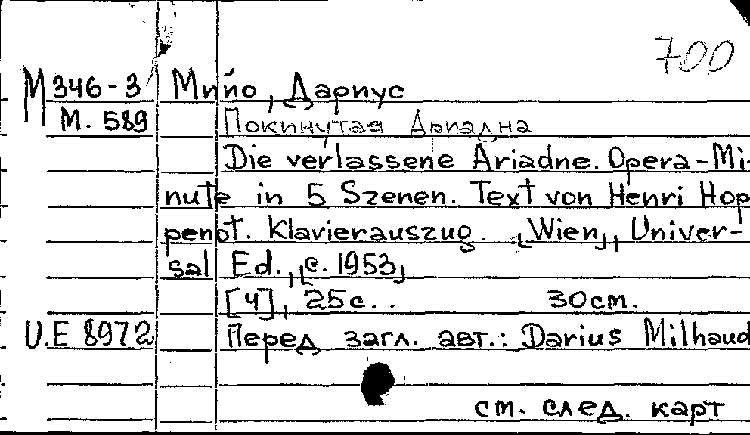 700
M346-3 Мийо, Дариус
М. 589 Покинутая Ариадна
Die verlassene Ariadne. Opera-Mi-
nute in 5 Szenen. Text von Henri Hop
penot. Klavierauszug. [Wien], Univer-
sal Ed., [c. 1953]
[4], 25 с. . 30 cm.
U.E 8972 Перед загл. авт.: Darius Milhaud
см. след. карт